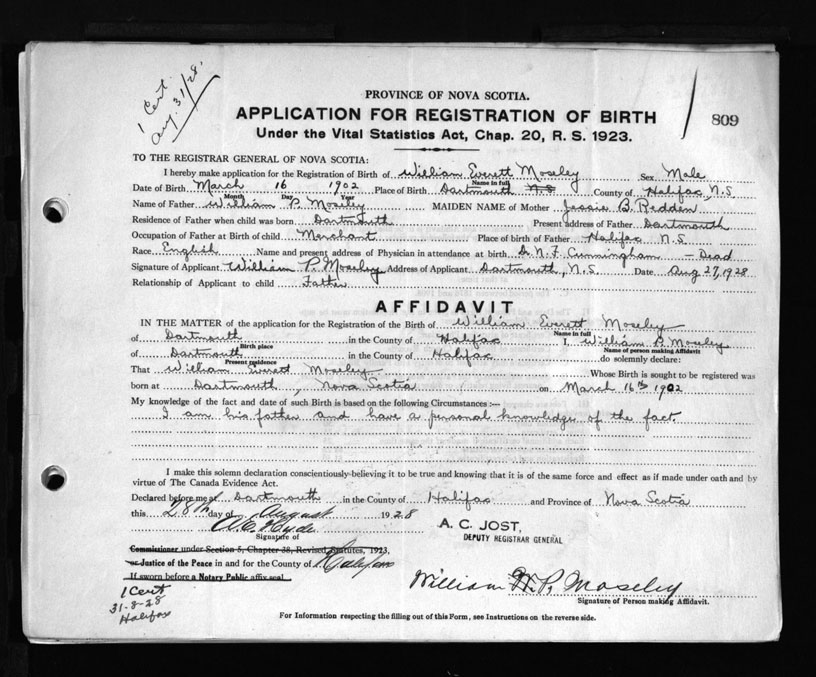 1 Cert
Aug. 31/28.
PROVINCE OF NOVA SCOTIA.
APPLICATION FOR REGISTRATION OF BIRTH
809
Under the Vital Statistics Act, Chap. 20, R. S. 1923.
TO THE REGISTRAR GENERAL OF NOVA SCOTIA:
I hereby make application for the Registration of Birth of William Everett Moseley Sex Male
Name in full
Date of Birth March 16 1902 Place of Birth Dartmouth N.S County of Halifax, N.S
Month Day Year
Name of Father William P. Moseley MAIDEN NAME of Mother Jessie B. Redden
Residence of Father when child was born Dartmouth Present address of Father Dartmouth
Occupation of Father at Birth of child Merchant Place of birth of Father Halifax N.S
Race English Name and present address of Physician in attendance at birth Dr. N. F. Cunningham – Dead
Signature of Applicant William P. Moseley Address of Applicant Dartmouth, N.S Date Aug 27, 1928
Relationship of Applicant to child Father
AFFIDAVIT
IN THE MATTER of the application for the Registration of the Birth of William Everett Moseley
Name in full
of Dartmouth in the County of Halifax I, William P. Moseley
Birth place Name of person making Affidavit
of Dartmouth in the County of Halifax do solemnly declare:
Present residence
That William Everett Moseley Whose Birth is sought to be registered was
born at Dartmouth, Nova Scotia on March 16th 1902
My knowledge of the fact and date of such Birth is based on the following Circumstances :—
I am his father and have a personal knowledge of the fact.
I make this solemn declaration conscientiously believing it to be true and knowing that it is of the same force and effect as if made under oath and by
virtue of The Canada Evidence Act.
Declared before me at Dartmouth in the County of Halifax and Province of Nova Scotia
this 28th day of August 1928
Signature of
A. C. JOST,
DEPUTY REGISTRAR GENERAL
Commissioner under Section 5, Chapter 38, Revised Statutes, 1923,
or Justice of the Peace in and for the County of Halifax
If sworn before a Notary Public affix seal.
William W. P. Moseley
Signature of Person making Affidavit.
1 Cert
31-8-28
Halifax
For Information respecting the filling out of this Form, see Instructions on the reverse side.